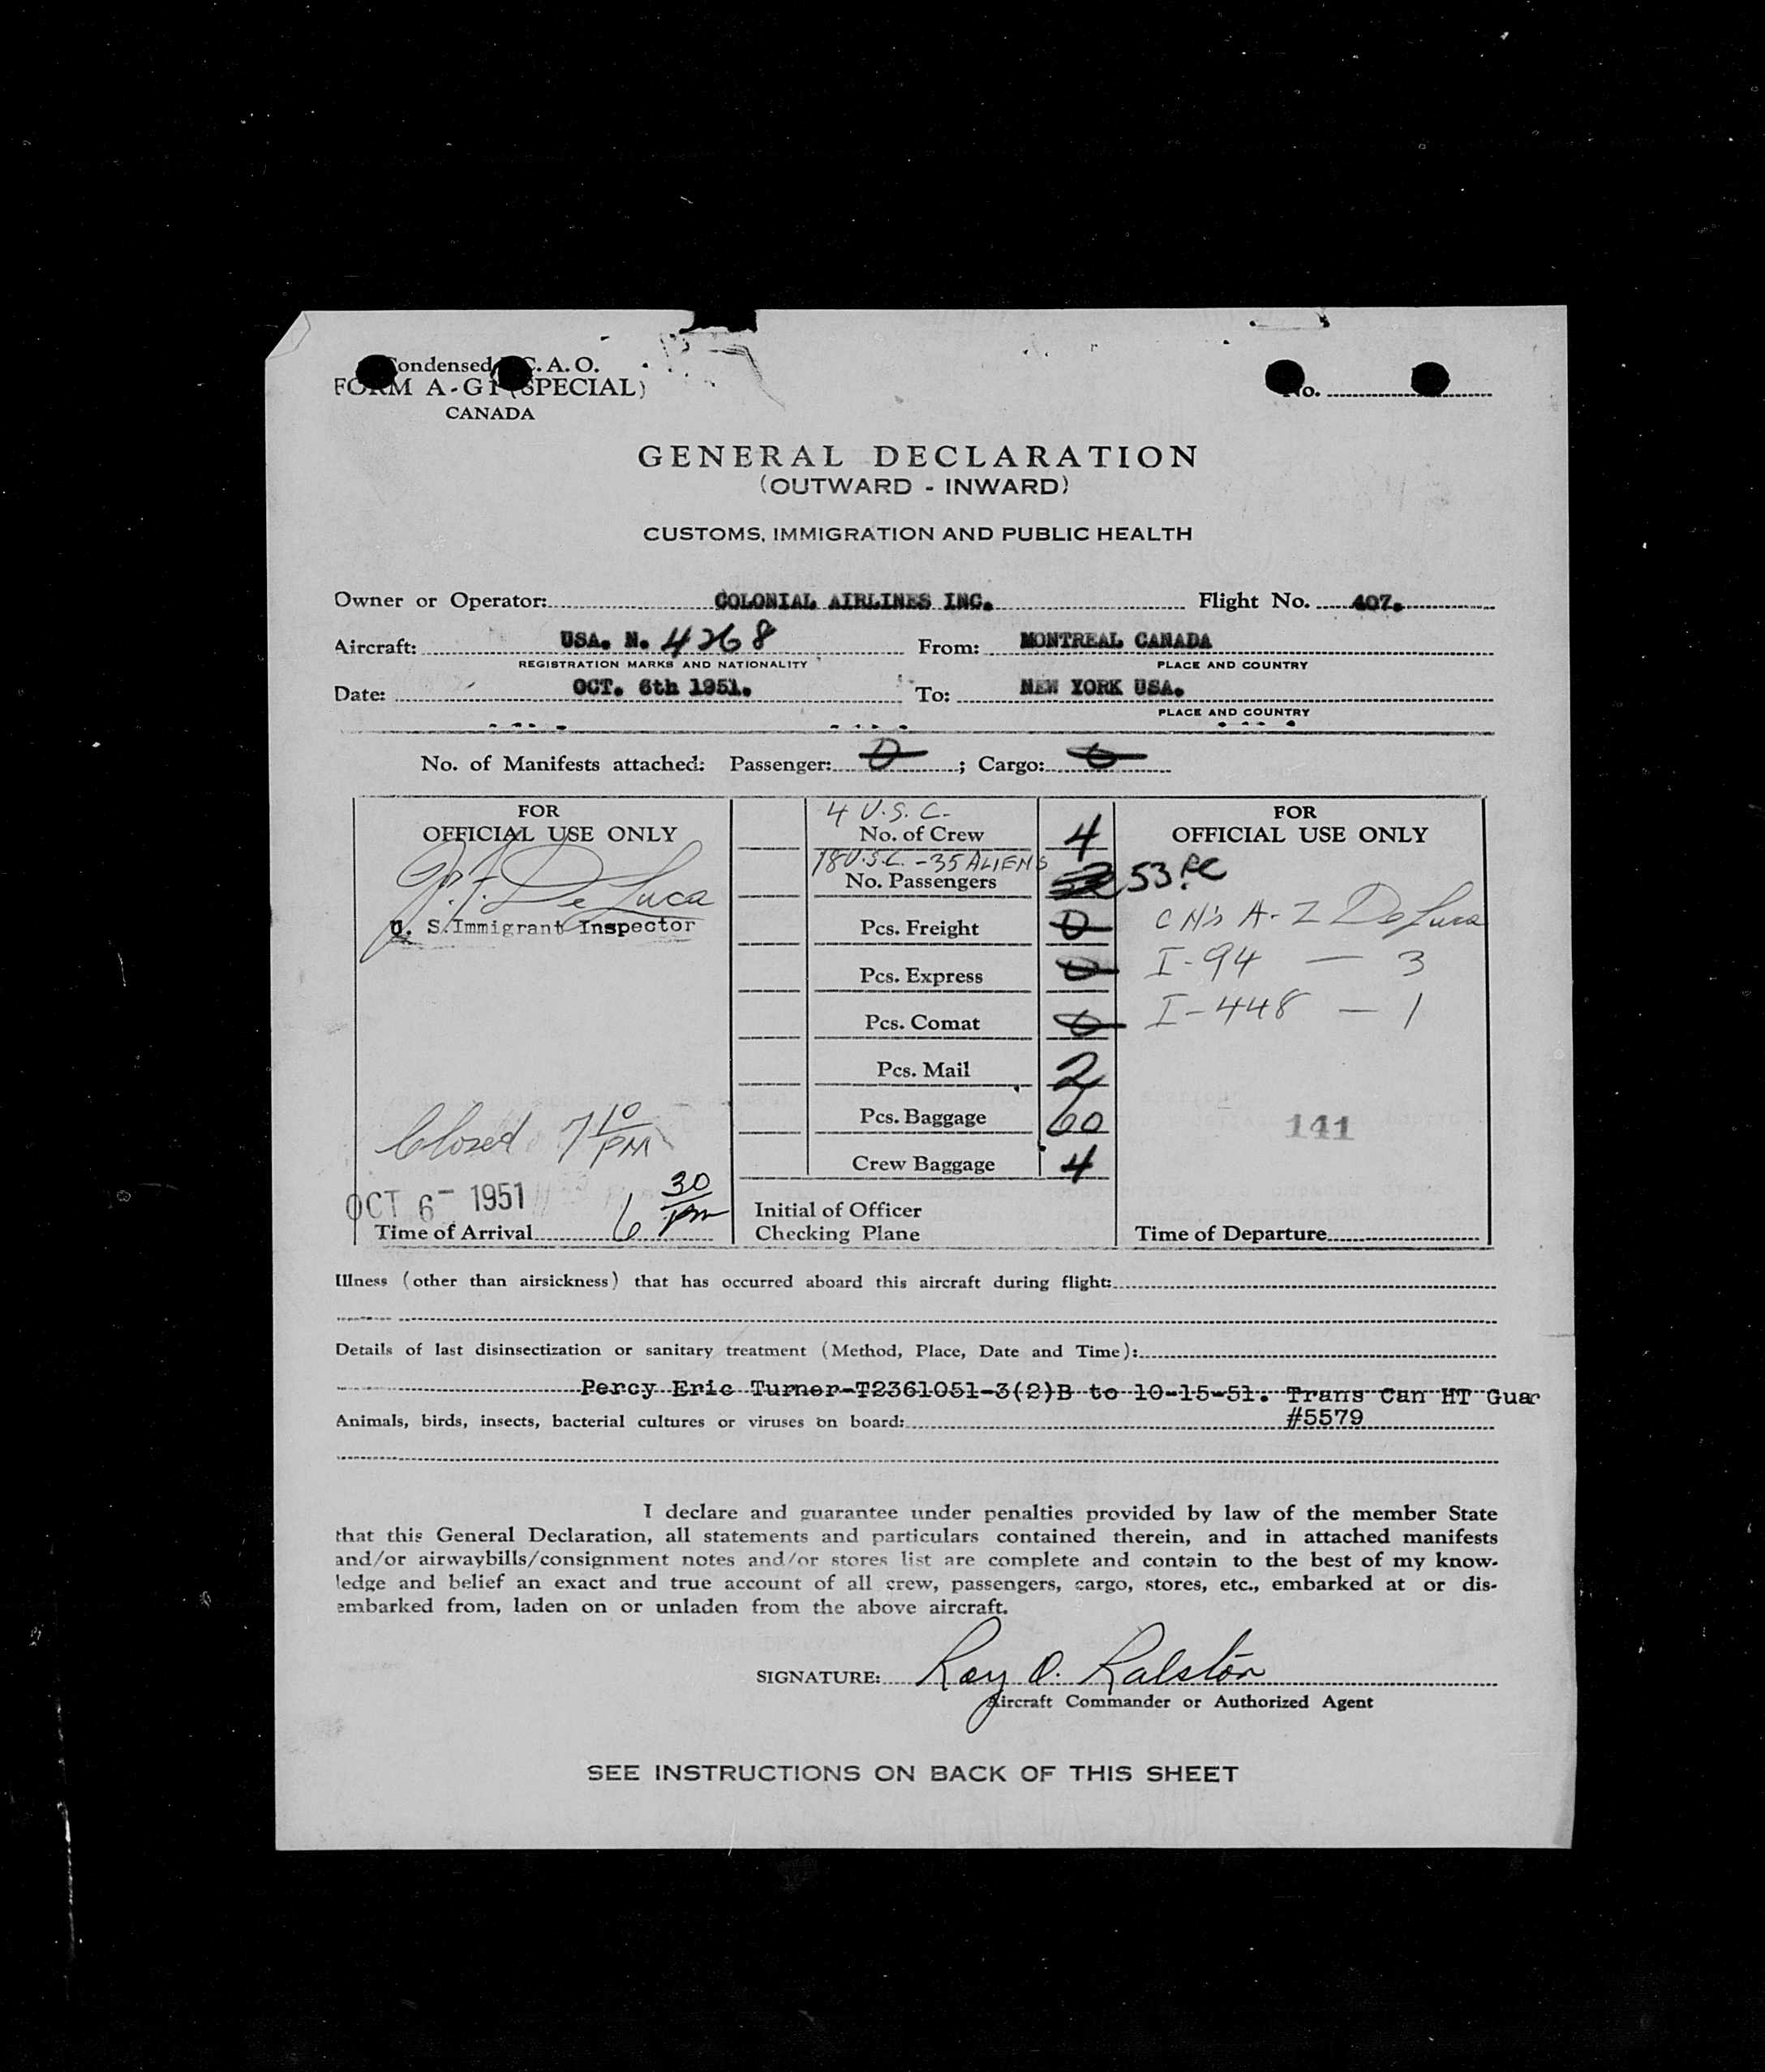 Condensed I.C.A.O.
FORM A-G1 (SPECIAL)
CANADA
No.
GENERAL DECLARATION
(OUTWARD - INWARD)
CUSTOMS, IMMIGRATION AND PUBLIC HEALTH
Owner or Operator: COLONIAL AIRLINES INC. Flight No. 407.
Aircraft: USA. N. 4268 From: MONTREAL CANADA
REGISTRATION MARKS AND NATIONALITY PLACE AND COUNTRY
Date: OCT. 6th 1951. To: NEW YORK USA.
PLACE AND COUNTRY
No. of Manifests attached: Passenger: 0; Cargo: 0
FOR
OFFICIAL USE ONLY
J.F. De Luca
U. S. Immigrant Inspector
Closed 7 10 PM
OCT 6 - 1951
6 30 pm
Time of Arrival
4 U.S.C.
No. of Crew 4
18 U.S.C. - 35 ALIENS
No. Passengers 53
Pcs. Freight 0
Pcs. Express 0
Pcs. Comat 0
Pcs. Mail 2
Pcs. Baggage 60
Crew Baggage 4
Initial of Officer
Checking Plane
FOR
OFFICIAL USE ONLY
A-Z De Luca
I-94 — 3
I-448 — 1
141
Time of Departure
Illness (other than airsickness) that has occurred aboard this aircraft during flight:
Details of last disinsectization or sanitary treatment (Method, Place, Date and Time):
Percy Eric Turner-T2361051-3(2)B to 10-15-51. Trans Can HT Guar
#5579
Animals, birds, insects, bacterial cultures or viruses on board:
I declare and guarantee under penalties provided by law of the member State
that this General Declaration, all statements and particulars contained therein, and in attached manifests
and/or airwaybills/consignment notes and/or stores list are complete and contain to the best of my know-
ledge and belief an exact and true account of all crew, passengers, cargo, stores, etc., embarked at or dis-
embarked from, laden on or unladen from the above aircraft.
SIGNATURE: Roy O. Ralston
Aircraft Commander or Authorized Agent
SEE INSTRUCTIONS ON BACK OF THIS SHEET